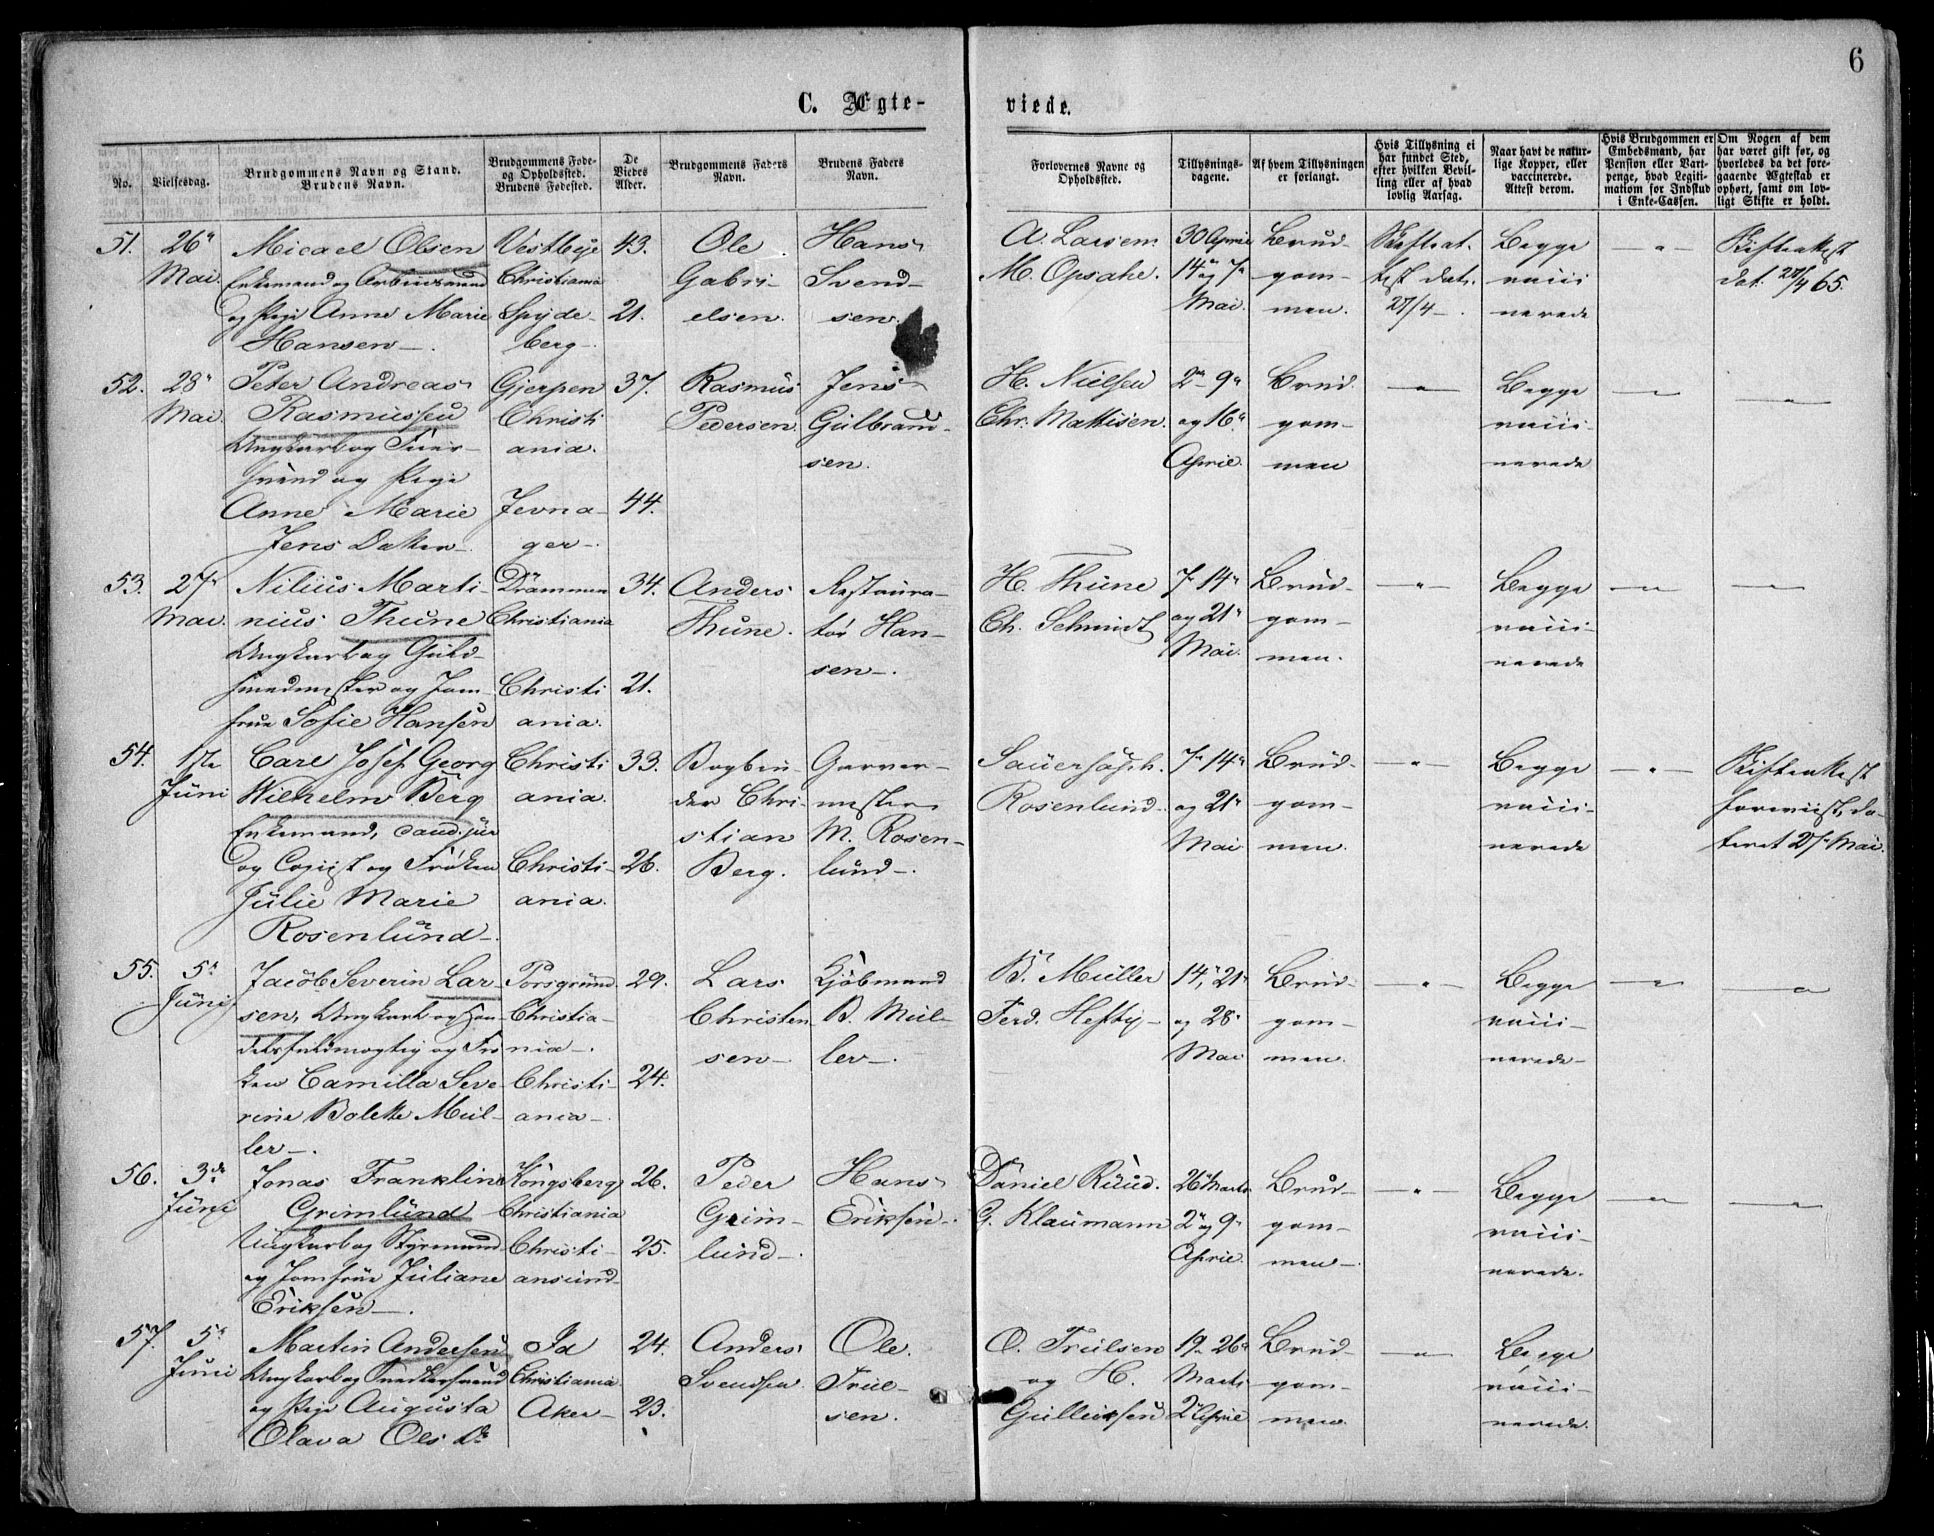 6
C. Ægte-
viede.
No.
Vielsesdag.
Brudgommens Navn og Stand.
Brudens Navn.
Brudgommens Føde-
og Opholdssted.
Brudens Fødested.
De
Viedes
Alder.
Brudgommens Faders
Navn.
Brudens Faders
Navn.
Forlovernes Navne og
Opholdssted.
Tillysnings-
dagene.
Af hvem Tillysningen
er forlangt.
Hvis Tillysning ei
har fundet Sted,
efter hvilken Bevil-
ling eller af hvad
lovlig Aarsag.
Naar havt de natur-
lige Kopper, eller
vaccinerede.
Attest derom.
Hvis Brudgommen er
Embedsmand, har
Pension eller Vart-
penge, hvad Legiti-
mation for Indskud
i Enke-Cassen.
Om Nogen af dem
har været gift før, og
hvorledes da det fore-
gaaende Ægteskab er
ophørt, samt om lov-
ligt Skifte er holdt.
51.
26"
Mai.
Micael Olsen
Enkemand og Arbeidsmand
og Pige Anne Marie
Hansen
Vestbye
Christiania
Spyde-
berg
43.
21.
Ole
Gabri-
elsen.
Hans
Svend-
sen.
A. Larsen
M. Opsahl.
30 April
14 og 7"
Mai.
Brud-
gom-
men.
Skifteat-
test dat.
27/4
Begge
vacci
nerede
Skifteattest
dat. 27/4 65.
52.
28"
Mai.
Peter Andreas
Rasmussen
Ungkarl og
svend og Pige
Anne Marie
Jens Datter
Gjerpen
Christi
ania.
Jevna-
ger
37.
44.
Rasmus
Pedersen
Jens
Gulbrand-
sen.
H. Nielsen
Chr. Mathisen.
2" 9"
og 16"
April.
Brud
gom-
men
Begge
vacci-
nerede
53.
27"
Mai.
Nilius Marti
nius Thune
Ungkarl og Guld-
smedmester og Jom-
frue Sofie Hansen
Drammen
Christiania
Christi
ania.
34.
21.
Anders
Thune.
Restaura-
tør Han-
sen
H. Thune
Ch. Schmidt
7" 14"
og 21"
Mai.
Brud-
gom-
men.
Begge
vacci-
nerede
54.
1ste
Juni
Carl Josef Georg
Wilhelm Berg
Enkemand, cand. jur
og Copiist og Frøken
Julie Marie
Rosenlund
Christi
ania.
Christi-
ania.
33.
26.
Bogbin-
der Chri-
stian
Berg.
Garver-
mester
M. Rosen-
lund
Rosenlund
7" 14"
og 21"
Mai
Brud-
gom-
men.
Begge
vacci-
nerede
Skifteattest
foreviist, da-
teret 27" Mai.
55.
5"
Juni
Jacob Severin Lar-
sen, Ungkarl og Han-
delsfuldmægtig og Frø
ken Camilla Seve-
rine Bolette Mül-
ler
Porsgrund
Christia-
nia
Christi-
ania
29.
24.
Lars
Christen
sen
Kjøbmand
B. Mül-
ler
B. Müller
Ferd. Hefty
14", 21"
og 28"
Mai
Brud-
gom-
men.
Begge
vacci-
nerede
56.
3de
Juni
Jonas Franklin
Grimlund
Ungkarl og Styrmand
og Jomfrue Juliane
Eriksen
Kongsberg
Christiania
Christi-
ansund
26.
25.
Peder
Grim-
lund
Hans
Eriksen
Daniel Ruud.
G. Klaumann
26" Marts
2" og 9"
April.
Brud-
gom-
men
Begge
vacci-
nerede.
57.
5"
Juni
Martin Andersen
Ungkarl og Snedkersvend
og Pige Augusta
Olava Ols Dr
Id
Christiania
Aker
24.
23.
Anders
Svendsen
Ole
Truls-
sen.
O. Trulsen
og H.
Gulliksen
19" 26"
Marts
2" April
Brud-
gom-
men.
Begge
vacci-
nerede.